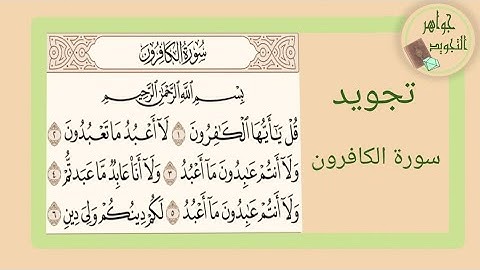 جواهر
التجويد
سورة الكافرون
بِسْمِ ٱللَّهِ ٱلرَّحْمَٰنِ ٱلرَّحِيمِ
قُلْ يَٰٓأَيُّهَا ٱلْكَٰفِرُونَ ١ لَآ أَعْبُدُ مَا تَعْبُدُونَ ٢
وَلَآ أَنتُمْ عَٰبِدُونَ مَآ أَعْبُدُ ٣ وَلَآ أَنَا۠ عَابِدٌ مَّا عَبَدتُّمْ ٤
وَلَآ أَنتُمْ عَٰبِدُونَ مَآ أَعْبُدُ ٥ لَكُمْ دِينُكُمْ وَلِيَ دِينِ ٦
تجويد
سورة الكافرون